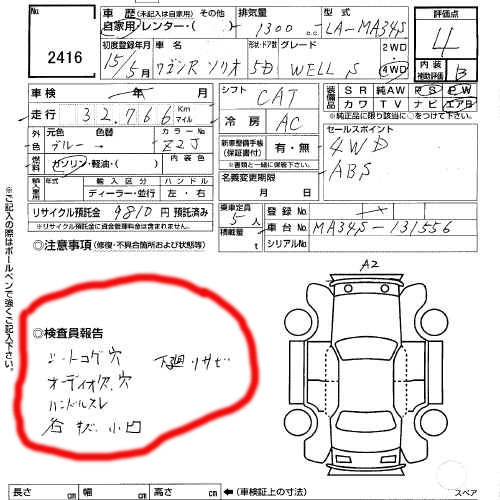 No.
2416
車歴 (未記入は自家用) その他
自家用・レンター・( )
排気量
1300 cc
型式
LA-MA34S
評価点
4
初度登録年月
15/5月
車名
ワゴンR ソリオ
形状・ドア数
5D
グレード
WELL S
2WD
4WD
内装
補助評価
B
車検 年 月
走行 32,766 Km
マイル
シフト
CAT
冷房
AC
装備品
SR 純AW PS PW
カワ TV ナビ エアB
※純正品に限り該当に○をつけて下さい。
外色
元色 色替
ブルー→
カラーNo
Z2J
燃料
ガソリン・軽油・( )
内装色
新車整備手帳
(保証書付)
有・無
※書類と一緒に保管して下さい。
セールスポイント
4WD
ABS
輸入車用
年式 輸入区分 ハンドル
ディーラー・並行 左・右
名義変更期限
月 日
リサイクル預託金 9810円 預託済み
※リサイクル預託金に資金管理料金は含まれません。
乗車定員
5人
積載量
t
登録No.
車台No. MA34S-131556
シリアルNo.
◎注意事項 (修復・不具合箇所および状態等)
A2
◎検査員報告
シートコゲ穴 下廻りサビ
オーディオ欠、穴
ハンドルスレ
各キズ、小凹
※ご記入の際はボールペンで強くご記入下さい。
長さ cm 幅 cm 高さ cm ←(車検証上の寸法)
スペア